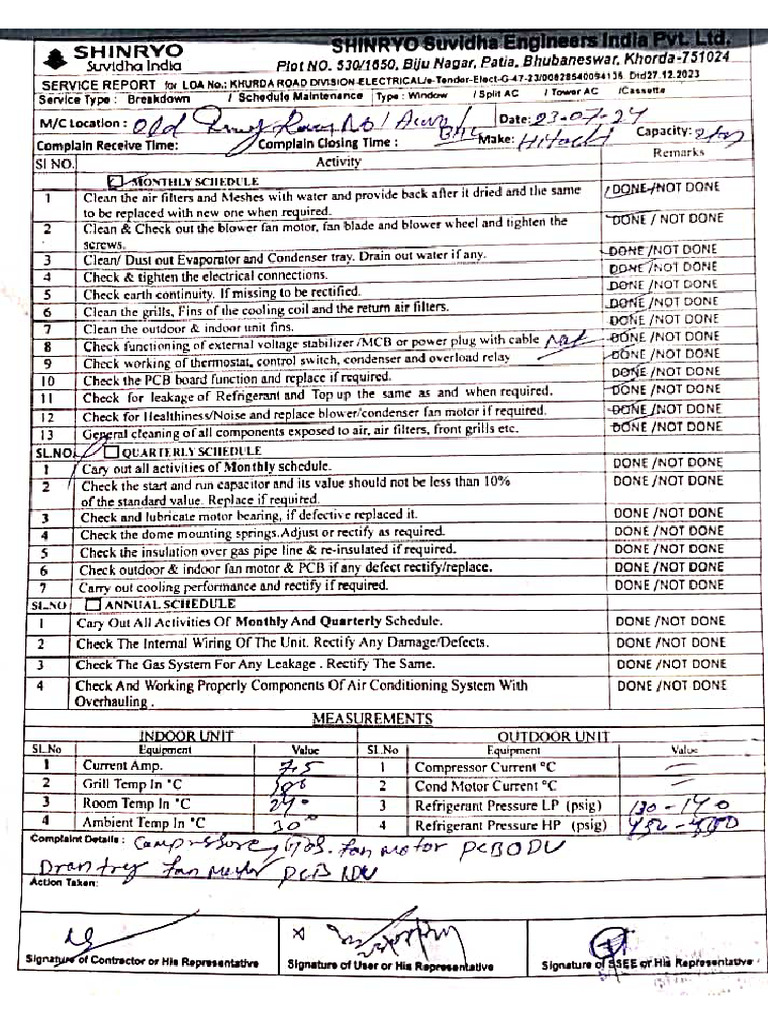 SHINRYO
Suvidha India
SHINRYO Suvidha Engineers India Pvt. Ltd.
Plot NO. 530/1650, Biju Nagar, Patia, Bhubaneswar, Khorda-751024
SERVICE REPORT for LOA No.: KHURDA ROAD DIVISION-ELECTRICAL/e-Tender-Elect-G-47-23/00828540094136 Dtd27.12.2023
Service Type: Breakdown / Schedule Maintenance Type: Window / Split AC / Tower AC /Cassette
M/C Location: Old Date: 23-07-24
Complain Receive Time: Complain Closing Time: Make: Hitachi Capacity:
Sl NO. Activity Remarks
MONTHLY SCHEDULE
1 Clean the air filters and Meshes with water and provide back after it dried and the same DONE/NOT DONE
to be replaced with new one when required.
2 Clean & Check out the blower fan motor, fan blade and blower wheel and tighten the DONE / NOT DONE
screws.
3 Clean/ Dust out Evaporator and Condenser tray. Drain out water if any. DONE /NOT DONE
4 Check & tighten the electrical connections. DONE /NOT DONE
5 Check earth continuity. If missing to be rectified. DONE /NOT DONE
6 Clean the grills, Fins of the cooling coil and the return air filters. DONE /NOT DONE
7 Clean the outdoor & indoor unit fins. DONE /NOT DONE
8 Check functioning of external voltage stabilizer /MCB or power plug with cable DONE /NOT DONE
9 Check working of thermostat, control switch, condenser and overload relay DONE /NOT DONE
10 Check the PCB board function and replace if required. DONE /NOT DONE
11 Check for leakage of Refrigerant and Top up the same as and when required. DONE /NOT DONE
12 Check for Healthiness/Noise and replace blower/condenser fan motor if required. DONE /NOT DONE
13 General cleaning of all components exposed to air, air filters, front grills etc. DONE /NOT DONE
SL.NO. QUARTERLY SCHEDULE
1 Cary out all activities of Monthly schedule. DONE /NOT DONE
2 Check the start and run capacitor and its value should not be less than 10% DONE /NOT DONE
of the standard value. Replace if required.
3 Check and lubricate motor bearing, if defective replaced it. DONE /NOT DONE
4 Check the dome mounting springs.Adjust or rectify as required. DONE /NOT DONE
5 Check the insulation over gas pipe line & re-insulated if required. DONE /NOT DONE
6 Check outdoor & indoor fan motor & PCB if any defect rectify/replace. DONE /NOT DONE
7 Carry out cooling performance and rectify if required. DONE /NOT DONE
SL.NO ANNUAL SCHEDULE
1 Cary Out All Activities Of Monthly And Quarterly Schedule. DONE /NOT DONE
2 Check The Internal Wiring Of The Unit. Rectify Any Damage/Defects. DONE /NOT DONE
3 Check The Gas System For Any Leakage . Rectify The Same. DONE /NOT DONE
4 Check And Working Properly Components Of Air Conditioning System With DONE /NOT DONE
Overhauling .
MEASUREMENTS
INDOOR UNIT OUTDOOR UNIT
SL.No Equipment Value SL.No Equipment Value
1 Current Amp. 7.5 1 Compressor Current °C
2 Grill Temp In °C 2 Cond Motor Current °C
3 Room Temp In °C 24° 3 Refrigerant Pressure LP (psig) 130-140
4 Ambient Temp In °C 30° 4 Refrigerant Pressure HP (psig)
Complaint Details: Compressore, gas. fan motor PCB ODU
Drantry fan motor PCB IDU
Action Taken:
Signature of Contractor or His Representative Signature of User or His Representative Signature of SSEE or His Representative